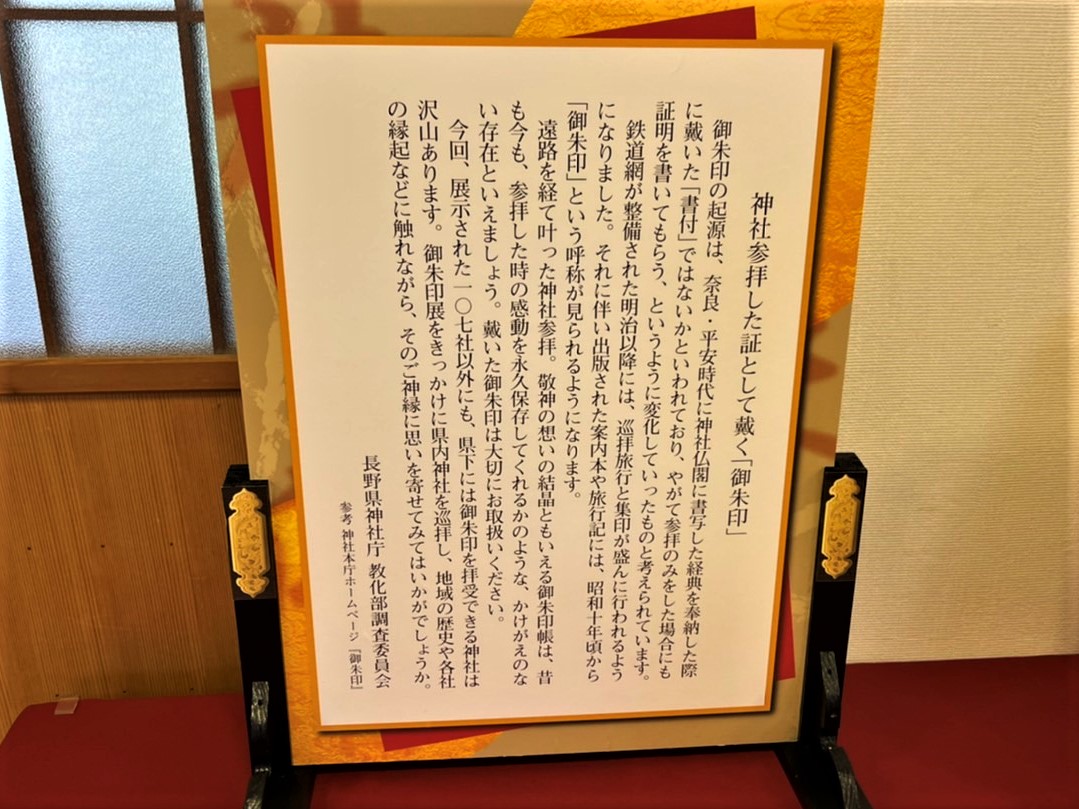 神社参拝した証として戴く「御朱印」
御朱印の起源は、奈良・平安時代に神社仏閣に書写した経典を奉納した際
に戴いた「書付」ではないかといわれており、やがて参拝のみをした場合にも
証明を書いてもらう、というように変化していったものと考えられています。
鉄道網が整備された明治以降には、巡拝旅行と集印が盛んに行われるよう
になりました。それに伴い出版された案内本や旅行記には、昭和十年頃から
「御朱印」という呼称が見られるようになります。
遠路を経て叶った神社参拝。敬神の想いの結晶ともいえる御朱印帳は、昔
も今も、参拝した時の感動を永久保存してくれるかのような、かけがえのな
い存在といえましょう。戴いた御朱印は大切にお取扱いください。
今回、展示された一〇七社以外にも、県下には御朱印を拝受できる神社は
沢山あります。御朱印展をきっかけに県内神社を巡拝し、地域の歴史や各社
の縁起などに触れながら、そのご神縁に思いを寄せてみてはいかがでしょうか。
長野県神社庁 教化部調査委員会
参考 神社本庁ホームページ『御朱印』